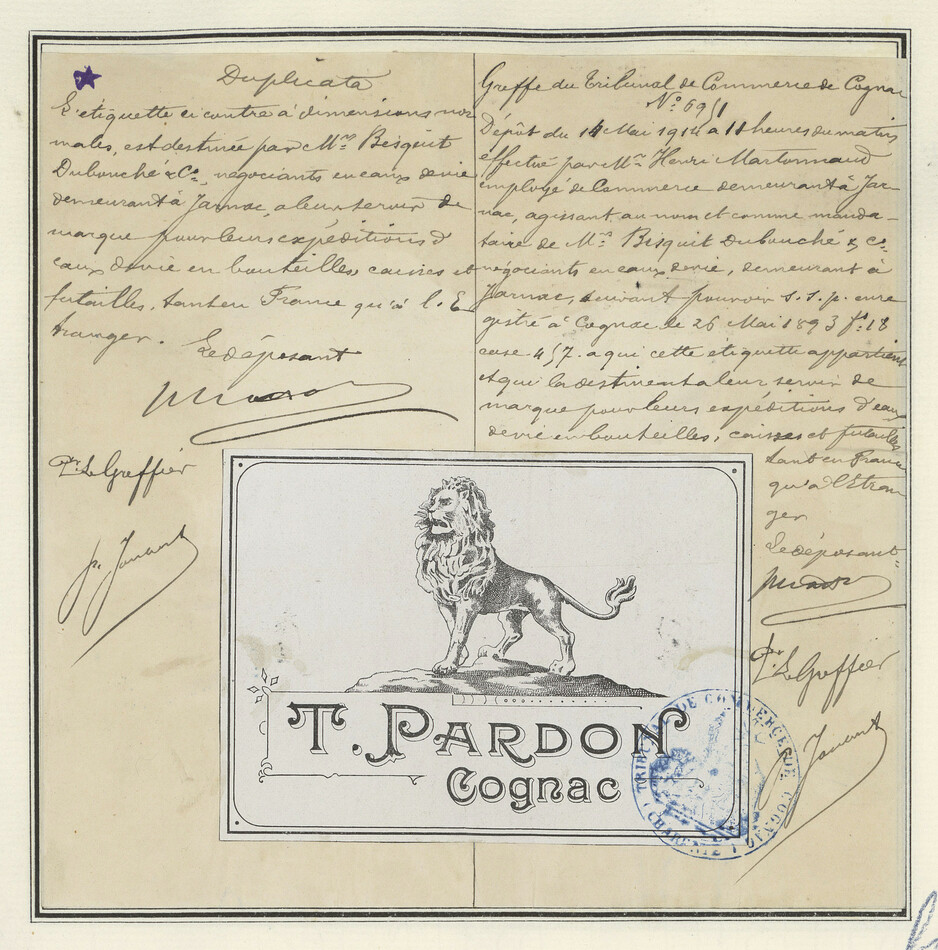 Duplicata
L'étiquette ci contre à dimensions nor
males, est destinée par Mrs Bisquit
Dubouché & Co, négociants en eaux de vie
demeurant à Jarnac, a leur servir de
marque pour leurs expéditions d'
eaux de vie en bouteilles, caisses et
futailles, tant en France qu'à l'E
tranger.
Le déposant
Pr. Le Greffier
Greffe du Tribunal de Commerce de Cognac
No 6951
Dépôt du 14 Mai 1914 à 11 heures du matin
effectué par Mr Henri Martonnaud
employé de Commerce demeurant à Jar-
nac, agissant au nom et comme manda-
taire de Mrs Bisquit Dubouché & Co.
négociants en eaux de vie, demeurant à
Jarnac, suivant pouvoir s.s.p. enre
gistré à Cognac le 26 Mai 1893 fo 18
case 457. a qui cette étiquette appartient
et qui la destinent a leur servir de
marque pour leurs expéditions d'eaux
de vie en bouteilles, caisses et futailles
tant en France
qu'à l'Etran
ger
Le déposant
Pr Le Greffier
T. PARDON
Cognac
TRIBUNAL DE COMMERCE DE COGNAC
(CHARENTE)